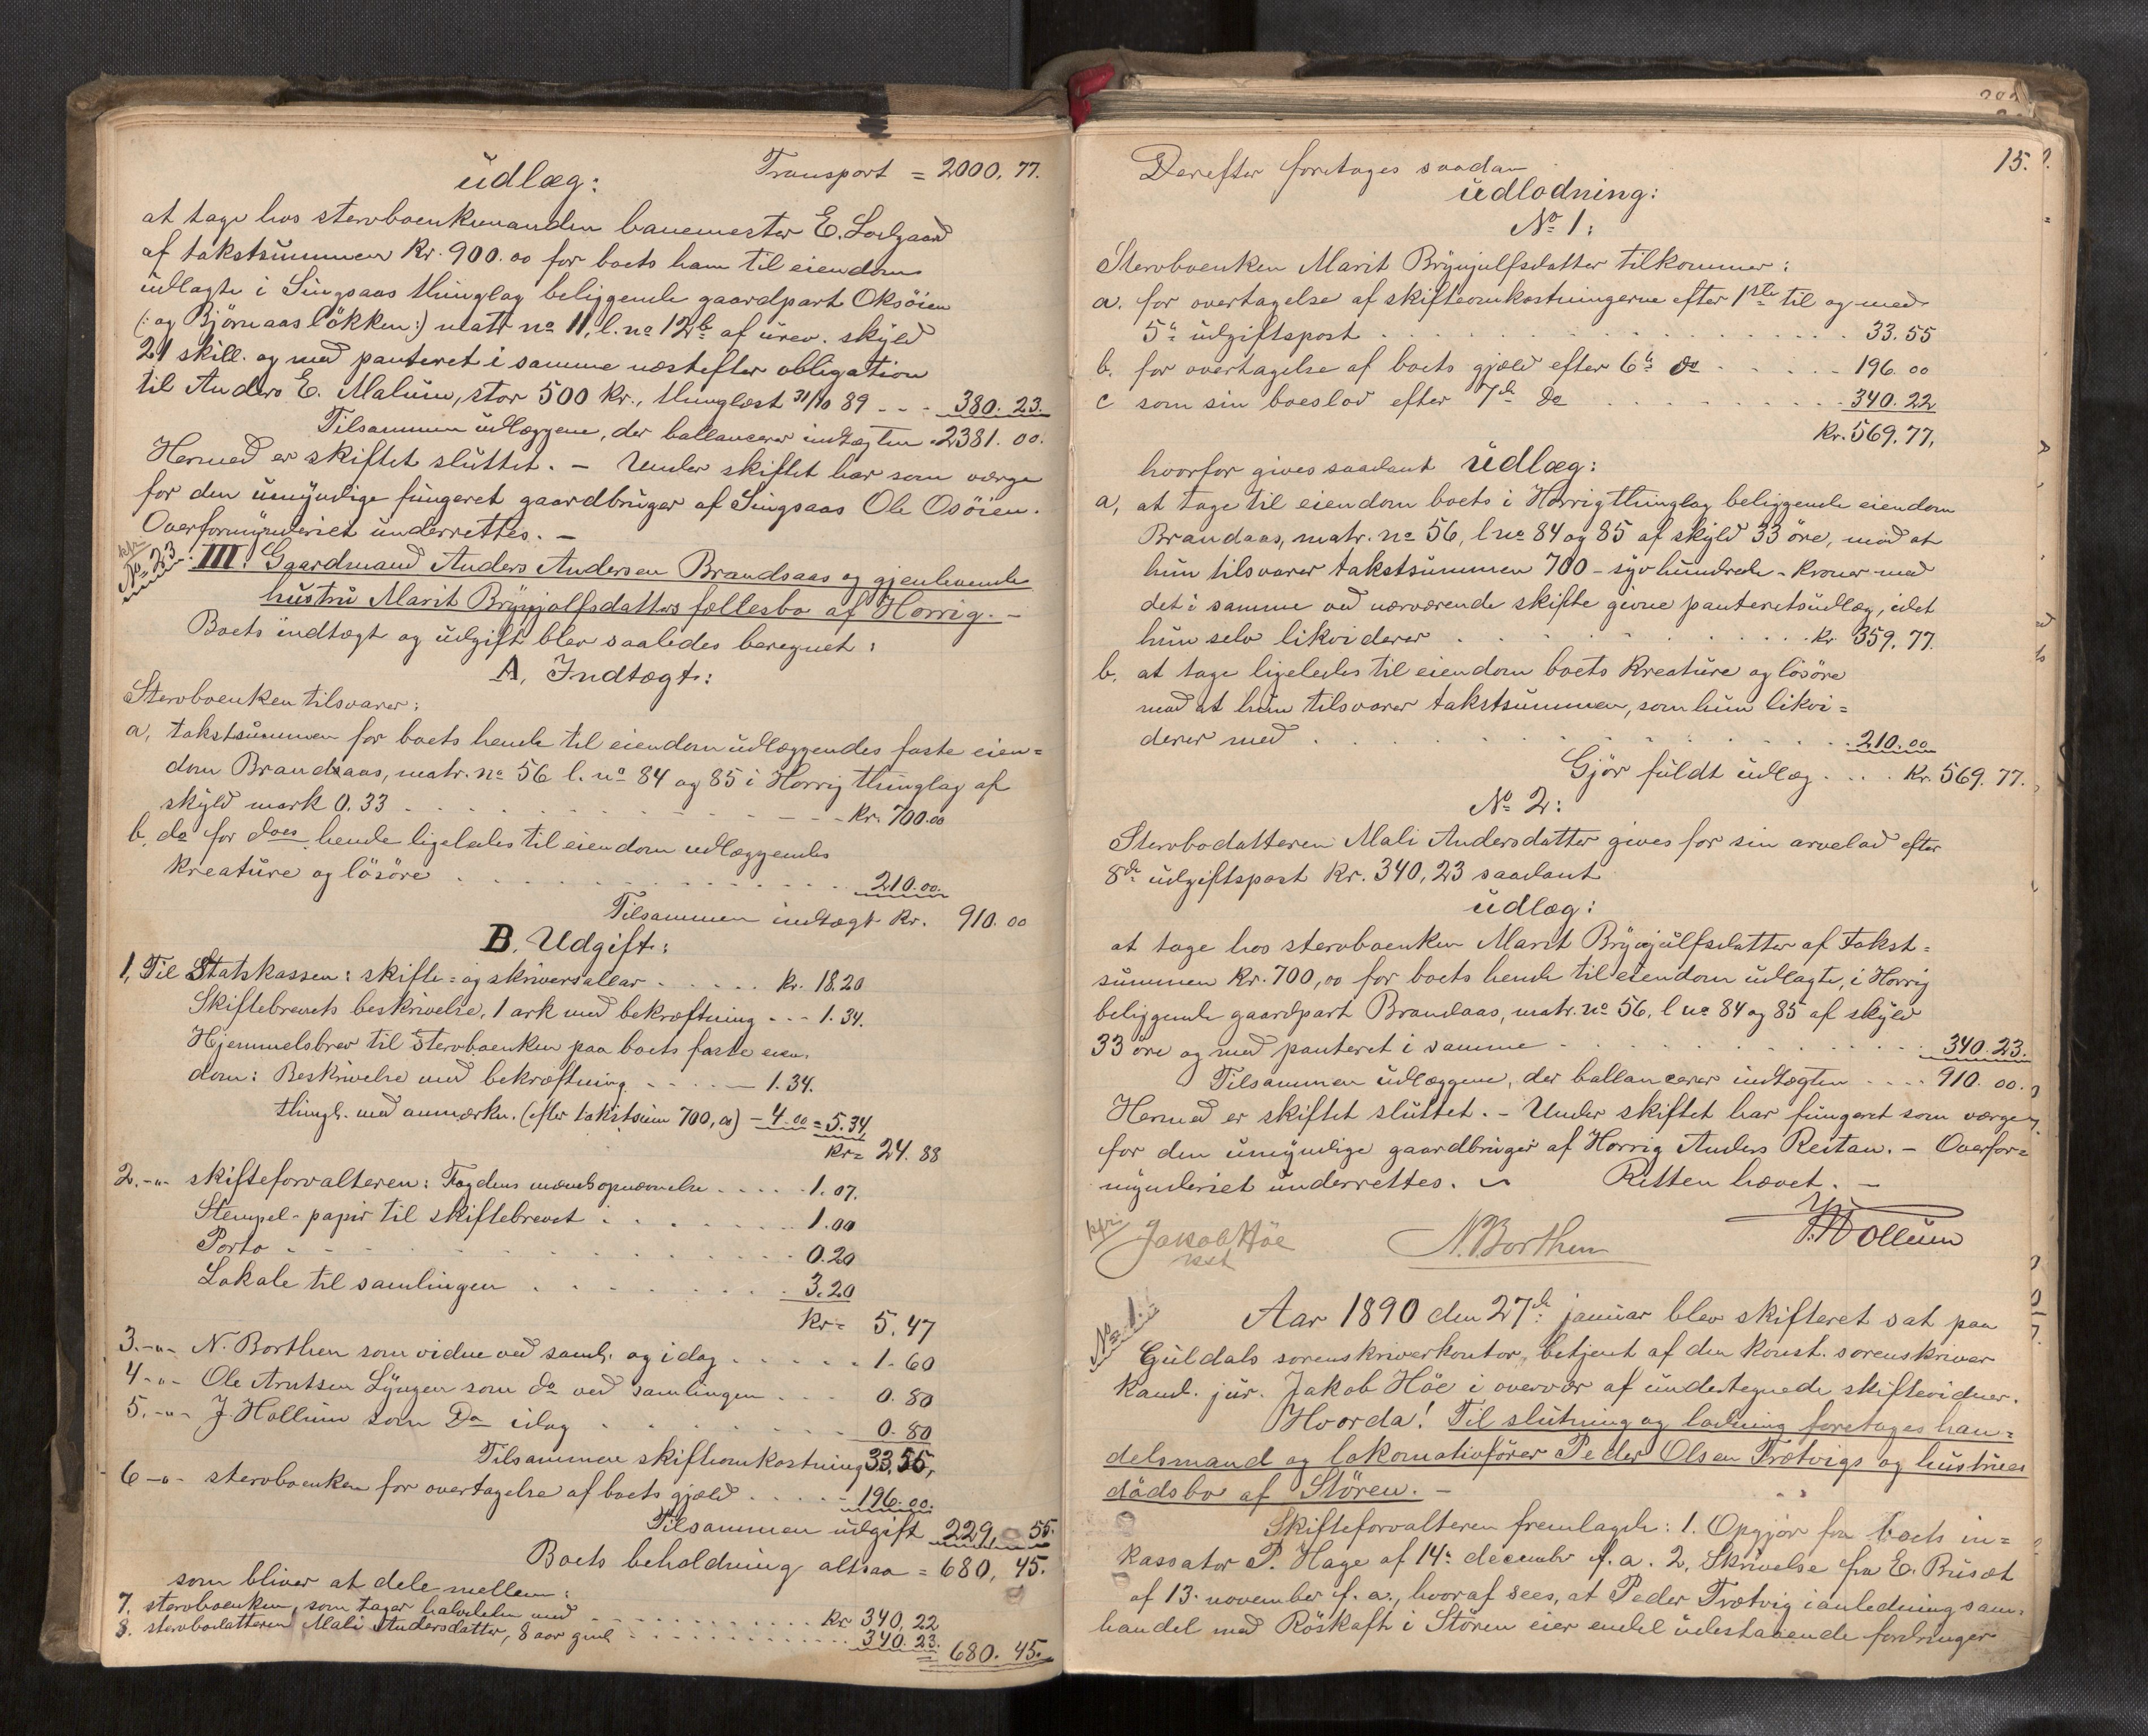 Transport = 2000.77.
udlæg:
at tage hos sterboenkemanden banemester E. Lodgaard
af takstsummen kr. 900.00 for boets ham til eiendom
udlagte i Singsaas thinglag beliggende gaardpart Oksöien
(: og Björnaaslökken :) matr no 11, l. no 12b af urev. skyld
21 skill. og med panteret i samme næstefter obligation
til Anders E. Malum, stor 500 kr., thinglæst 31/10 89 - - - 380.23.
Tilsammen udlæggene, der ballancerer indtægten - 2381.00.
Hermed er skiftet sluttet. - Under skiftet har som værge
for den umyndige fungeret gaardbruger af Singsaas Ole Osöien.
Overformynderiet underrettes. -
No 23
III. Gaardmand Anders Andersen Brandsaas og gjenlevende
hustru Marit Brynjolfsdatters fællesbo af Horrig. -
Boets indtægt og udgift blev saaledes beregnet:
A, Indtægt:
Sterboenken tilsvarer:
a, takstsummen for boets hende til eiendom udlæggendes faste eien=
dom Brandsaas, matr. no 56 l. no 84 og 85 i Horrig thinglag af
skyld mark 0.33 - - - kr. 700.00
b, do for does hende ligeledes til eiendom udlæggendes
kreature og lösöre . . . 210.00.
Tilsammen indtægt kr. 910.00
B. Udgift:
1, Til Statskassen: skifte= og skriversallar . . . kr. 18.20
Skiftebrevets beskrivelse, 1 ark med bekræftning - - - 1.34.
Hjemmelsbrev til sterboenken paa boets faste eien-
dom: Beskrivelse med bekræftning - - - 1.34.
thingl. med anmærkn. (efter takstsum 700,00) - 4.00 = 5.34.
kr= 24.88
2. -"- skifteforvalteren: Fogdens mændsopnævnelse . . . 1.07.
Stempel-papir til skiftebrevet . . . 1.00
Porto . . . 0.20
Lokale til samlingen . . . 3.20
kr= 5.47
3. -"- N. Borthen som vidne ved saml. og idag . . . 1.60
4 -"- Ole Arntsen Lyngen som do ved samlingen - - - 0.80
5. -"- J. Hollum som Do idag . . . 0.80
Tilsammen skifteomkostning 33,55,
6 -"- sterboenken for overtagelse af boets gjæld . . . 196.00.
Tilsammen udgift 229, 55.
Boets beholdning altsaa = 680,45.
som bliver at dele mellem:
7. sterboenken, som tager halvdelen med . . . kr 340,22
8. sterbodatteren Mali Andersdatter, 8 aar gml . . . 340.23. = 680.45.
15.
Derefter foretages saadan
udlodning:
No 1:
Sterboenken Marit Brynjulfsdatter tilkommer:
a. for overtagelse af skifteomkostningerne efter 1ste til og med
5te udgiftspost . . . 33.55
b. for overtagelse af boets gjæld efter 6te do . . . 196.00
c som sin boeslod efter 7de Do . . . 340.22
kr. 569.77,
hvorfor gives saadant udlæg:
a, at tage til eiendom boets i Horrig thinglag beliggende eiendom
Brandaas, matr. no 56, l no 84 og 85 af skyld 33 öre, mod at
hun tilsvarer takstsummen 700 - syv hundrede - kroner med
det i samme ved nærværende skifte givne panteretsudlæg, idet
hun selv likviderer . . . kr. 359.77.
b. at tage ligeledes til eiendom boets kreature og lösöre
mod at hun tilsvarer takstsummen, som hun likvi=
derer med . . . 210.00
Gjör fuldt udlæg . . . kr. 569.77.
No 2:
Sterbodatteren Mali Andersdatter gives for sin arvelod efter
8de udgiftspost kr. 340,23 saadant
udlæg:
at tage hos sterboenken Marit Brynjulfsdatter af takst=
summen kr. 700,00 for boets hende til eiendom udlagte, i Horrig
beliggende gaardpart Brandaas, matr. no 56, l no 84 og 85 af skyld
33 öre og med panteret i samme . . . 340.23.
Tilsammen udlæggene, der ballancerer indtægten . . . 910.00.
Hermed er skiftet sluttet. - Under skiftet har fungeret som værge
for den umyndige gaardbruger af Horrig Anders Reitan. - Overfor=
mynderiet underrettes. Retten hævet. -
Jakob Höe
kst
N. Borthen
J. Hollum
No 1.
Aar 1890 den 27de januar blev skifteret sat paa
Guldals sorenskriverkontor, betjent af den konst. sorenskriver
kand. jur. Jakob Höe i overvær af undertegnede skiftevidner.
Hvorda! Til slutning og lodning foretages han=
delsmand og lokomotivförer Peder Olsen Trætvigs og hustrues
dödsbo af Stören. -
Skifteforvalteren fremlagde: 1. Opgjör fra boets in=
kassator P. Hage af 14de december f. a. 2, Skrivelse fra E. Busæt
af 13. november f. a., hvoraf sees, at Peder Trætvig i anledning sam-
handel med Röskaft i Stören eier endel udestaaende fordringer